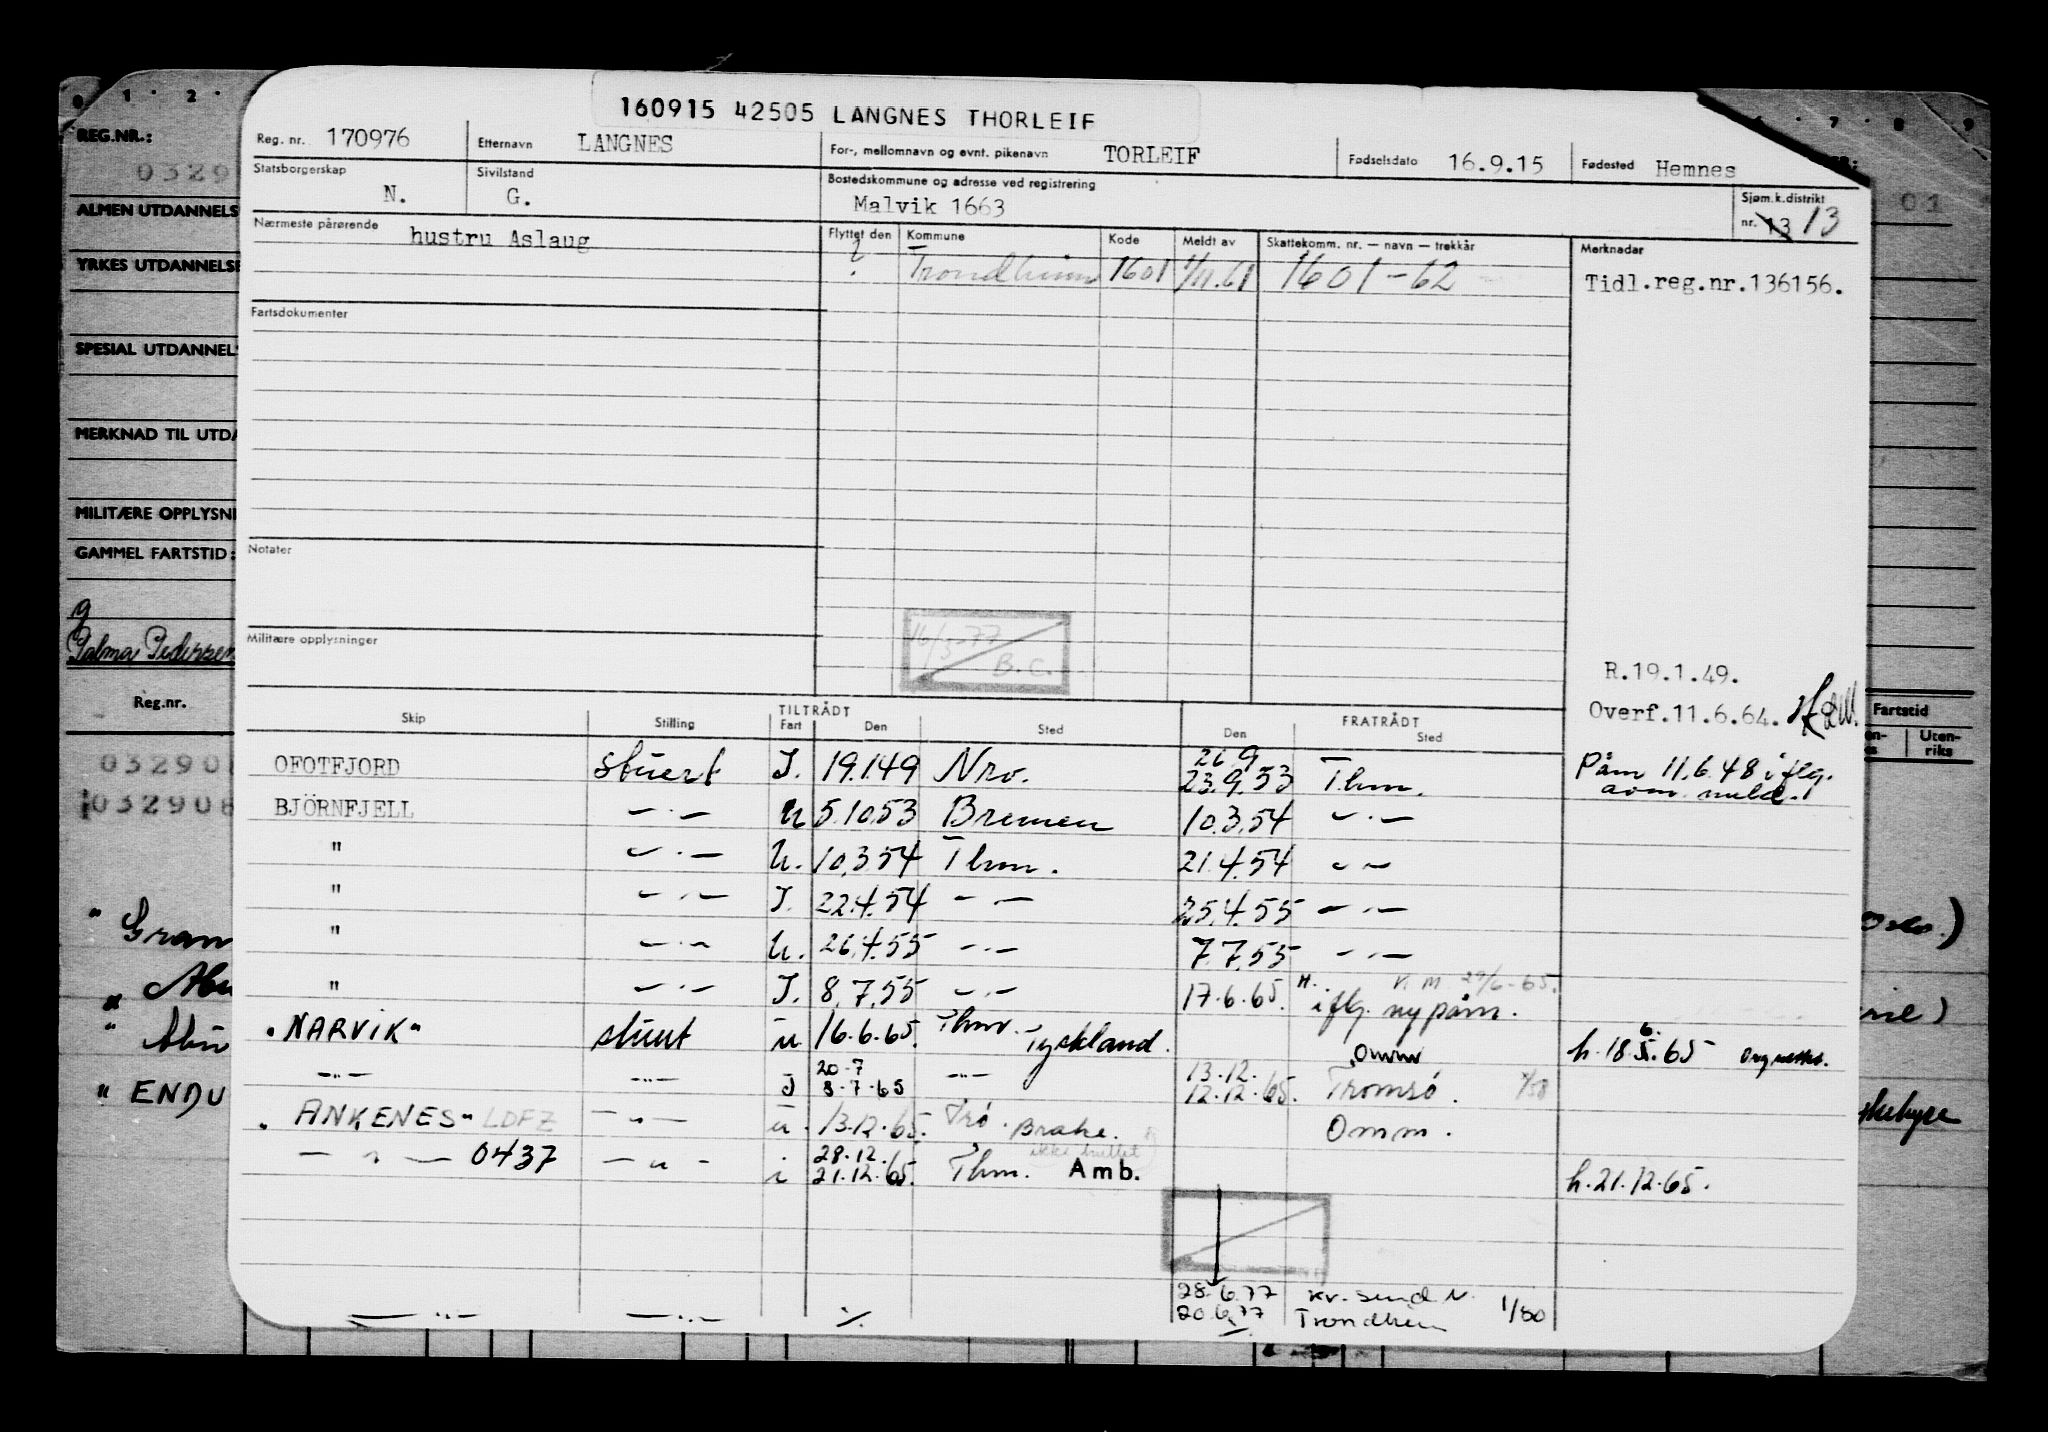 160915 42505 LANGNES THORLEIF
Reg. nr. 170976 Etternavn LANGNES For-, mellomnavn og evnt. pikenavn TORLEIF Fødselsdato 16.9.15 Fødested Hemnes
Statsborgerskap N. Sivilstand G. Bostedskommune og adresse ved registrering Malvik 1663 Sjøm.k.distrikt nr. 13 13
Nærmeste pårørende hustru Aslaug Flyttet den Kommune Kode Meldt av Skattekomm. nr. — navn — trekkår Merknader
? Trondheim 1601 1/11.61 1601-62 Tidl.reg.nr.136156.
Fartsdokumenter
Notater
16/3-77
B.C.
Militære opplysninger
R.19.1.49.
Overf.11.6.64.
TILTRÅDT FRATRÅDT
Skip Stilling Fart Den Sted Den Sted
OFOTFJORD stuert I. 19.1.49 Nrv. 26.9 23.9.53 Thm. Påm 11.6.48 iflg.
BJÖRNFJELL —·— U 5.10.53 Bremen 10.3.54 —·—
" —·— U. 10.3.54 Thm. 21.4.54 —·—
" —·— I. 22.4.54 —·— 25.4.55 —·—
" —·— U. 26.4.55 —·— 7.7.55 —·—
" —·— I. 8.7.55 —·— 17.6.65. K.M. 29/6-65.
iflg. ny påm.
"NARVIK" stuert u 16.6.65. Thm. Tyskland. Omm h.18.5.65 6.
—"— —"— I 20-7 8-7-65 —"— 13.12. 12.12.65. Tromsø.
"ANKENES" LDFZ —"— u. 13.12.65. Trø. Brake. Omm.
—"— 0437 —"— i 28.12. 21.12.65. Thm. ikke hullet Amb. h.21.12.65.
28.6.77 Kr.sund N. 1/80
—"— —"— 20.6.77 Trondheim
0 1 2 7 8 9
REG.NR.:
0329
01
ALMEN UTDANNELS
YRKES UTDANNELSE
SPESIAL UTDANNEL
MERKNAD TIL UTDA
MILITÆRE OPPLYSNI
GAMMEL FARTSTID:
Palma Pedersen
Reg.nr. Fartstid
Uten-
riks
03290
032908
" Gran
" ENDU